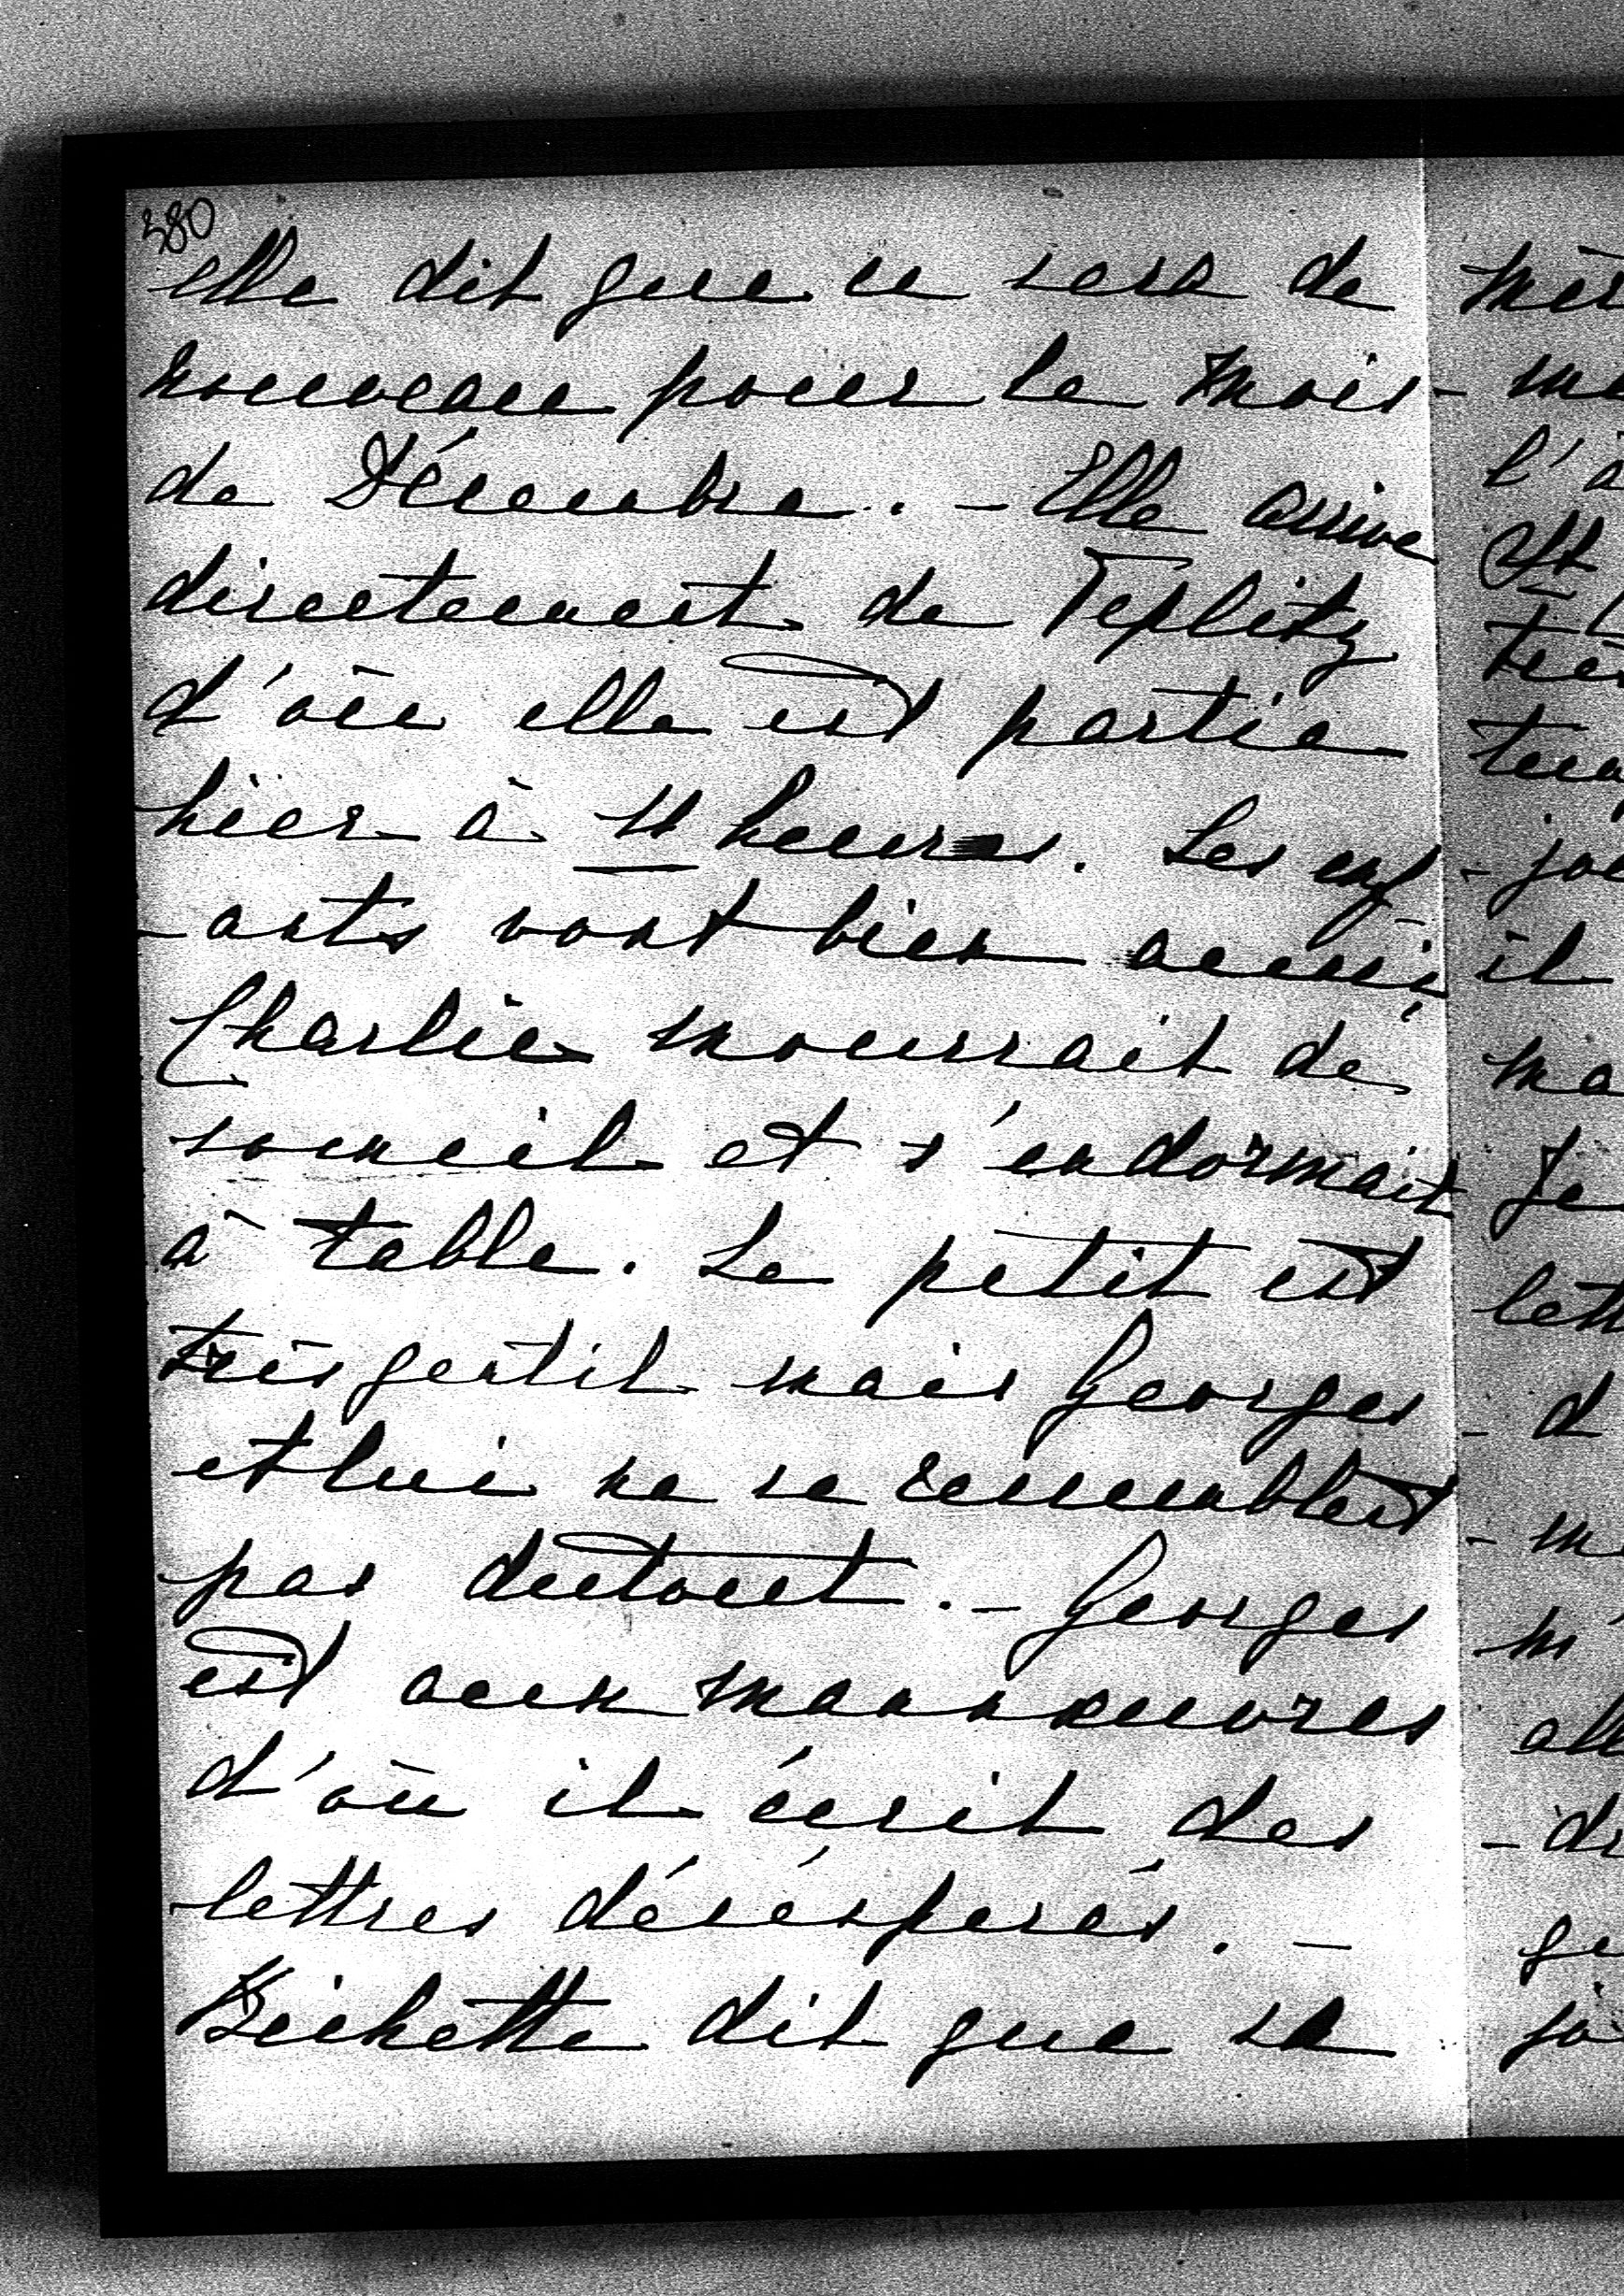 380
elle dit que ce sera de
nouveau pour le mois
de Décembre. - Elle arrive
directement de Teplitz
d'où elle est partie
hier à 11 heures. Les enf-
-ants vont bien aussi,
Charlie mourrait de
someil et s'endormait
à table. Le petit est
très gentil mais Georges
et lui ne se ressemblent
pas dutout. - Georges
est aux manœuvres
d'où il écrit des
lettres désésperés. -
Bichette dit que sa